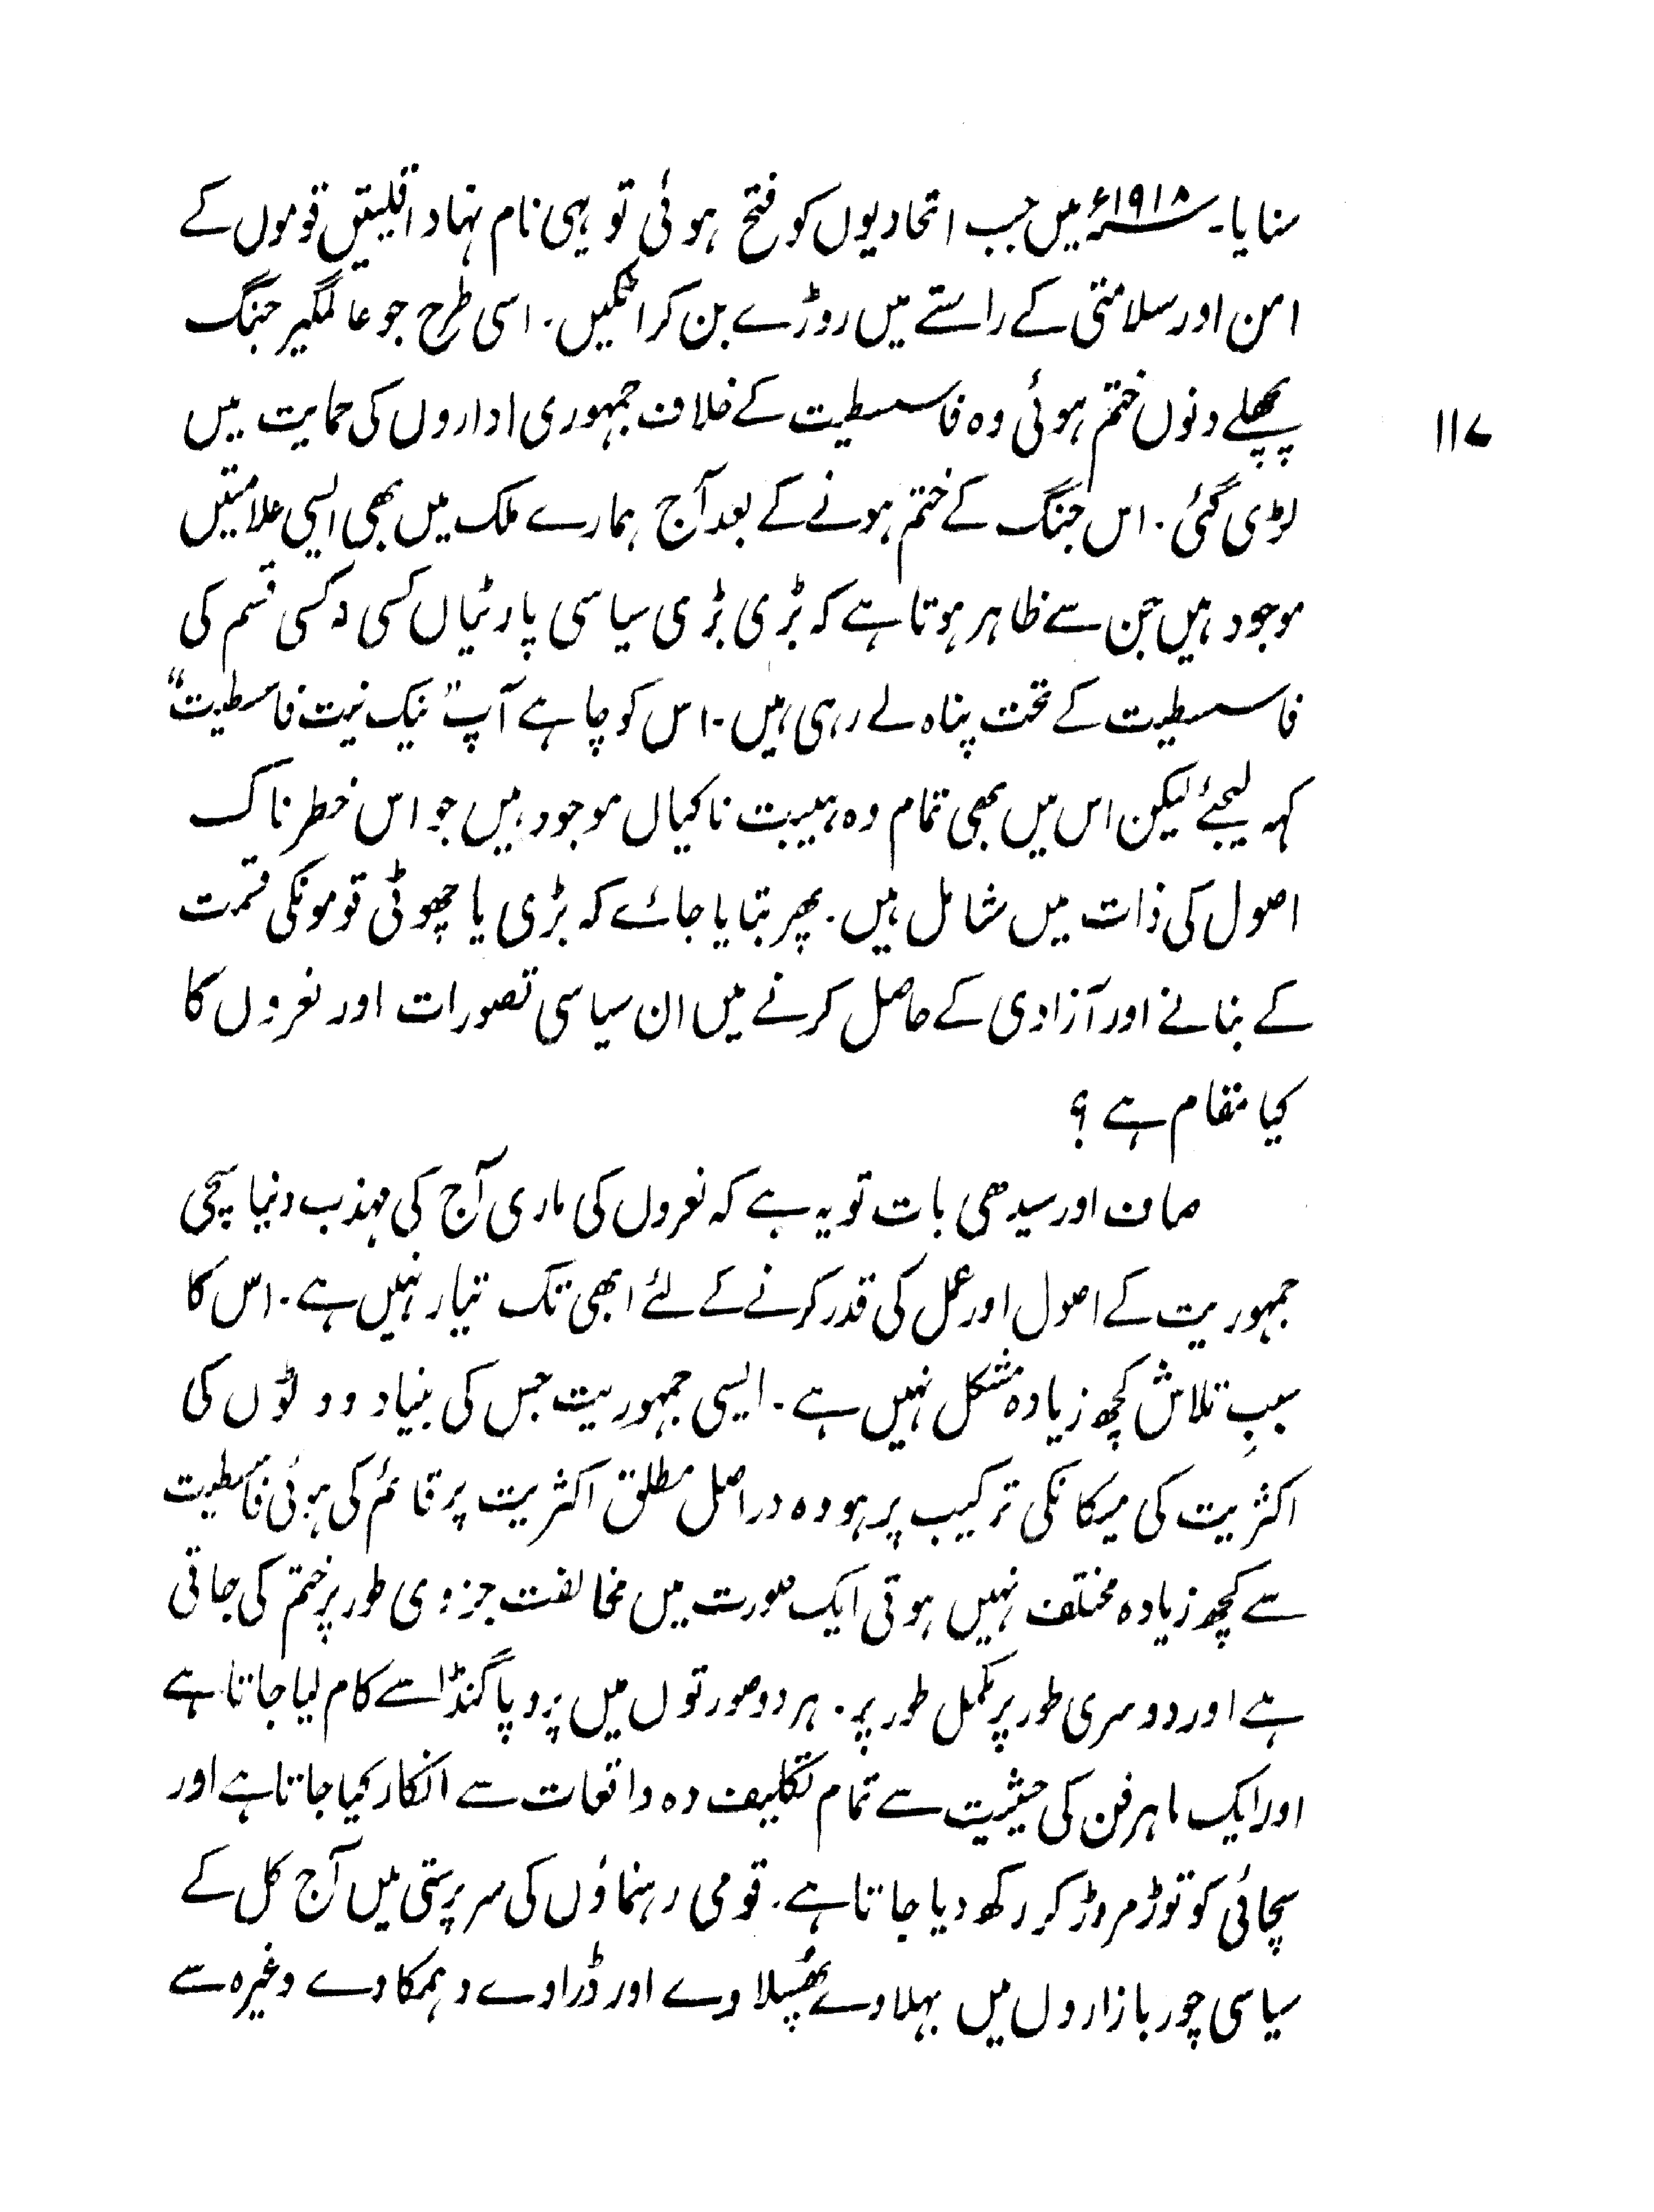 سنایا۔ ۱۹۱۸ء میں جب اتحادیوں کو فتح ہوئی تو یہی نام نہاد اقلیتیں قوموں کے
امن اور سلامتی کے راستے میں روڑے بن کر اٹکیں۔ اسی طرح جو عالمگیر جنگ
پچھلے دنوں ختم ہوئی وہ فاسسطیت کے خلاف جمہوری اداروں کی حمایت میں
۱۱۷
لڑی گئی۔ اس جنگ کے ختم ہونے کے بعد آج ہمارے ملک میں بھی ایسی علامتیں
موجود ہیں جن سے ظاہر ہوتا ہے کہ بڑی بڑی سیاسی پارٹیاں کسی نہ کسی قسم کی
فاسسطیت کے تحت پناہ لے رہی ہیں۔ اس کو چاہے آپ "نیک نیت فاسطیت"
کہہ لیجئے لیکن اس میں بھی تمام وہ ہیبت ناکیاں موجود ہیں جو اس خطرناک
اصول کی ذات میں شامل ہیں۔ پھر بتایا جائے کہ بڑی یا چھوٹی قومونکی قسمت
کے بنانے اور آزادی کے حاصل کرنے میں ان سیاسی تصورات اور نعروں کا
کیا مقام ہے؟
صاف اور سیدھی بات تو یہ ہے کہ نعروں کی ماری آج کی مہذب دنیا سچی
جمہوریت کے اصول اور عمل کی قدر کرنے کے لئے ابھی تک تیار نہیں ہے۔ اس کا
سببِ تلاش کچھ زیادہ مشکل نہیں ہے۔ ایسی جمہوریت جس کی بنیاد ووٹوں کی
اکثریت کی میکانکی ترکیب پر ہو وہ دراصل مطلق اکثریت پر قائم کی ہوئی فاسطیت
سے کچھ زیادہ مختلف نہیں ہوتی ایک صورت میں مخالفت جزوی طور پر ختم کی جاتی
ہے اور دوسری طور پر مکمل طور پر۔ ہر دو صورتوں میں پروپاگنڈا سے کام لیا جاتا ہے
اور ایک ماہر فن کی حیثیت سے تمام تکلیف دہ واقعات سے انکار کیا جاتا ہے اور
سچائی کو توڑ مروڑ کر رکھ دیا جاتا ہے۔ قومی رہنماؤں کی سرپرستی میں آج کل کے
سیاسی چور بازاروں میں بہلاوے پھُسلاوے اور ڈراوے دہمکاوے وغیرہ سے